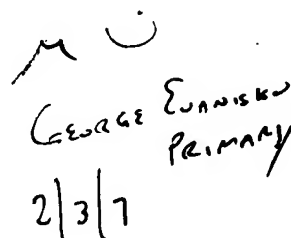 GEORGE EVANISKO
PRIMARY
2/3/7